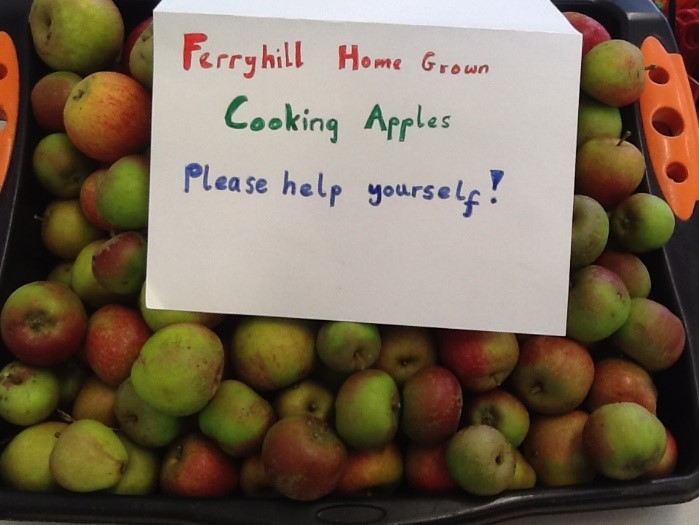 Ferryhill Home Grown
Cooking Apples
Please help yourself!